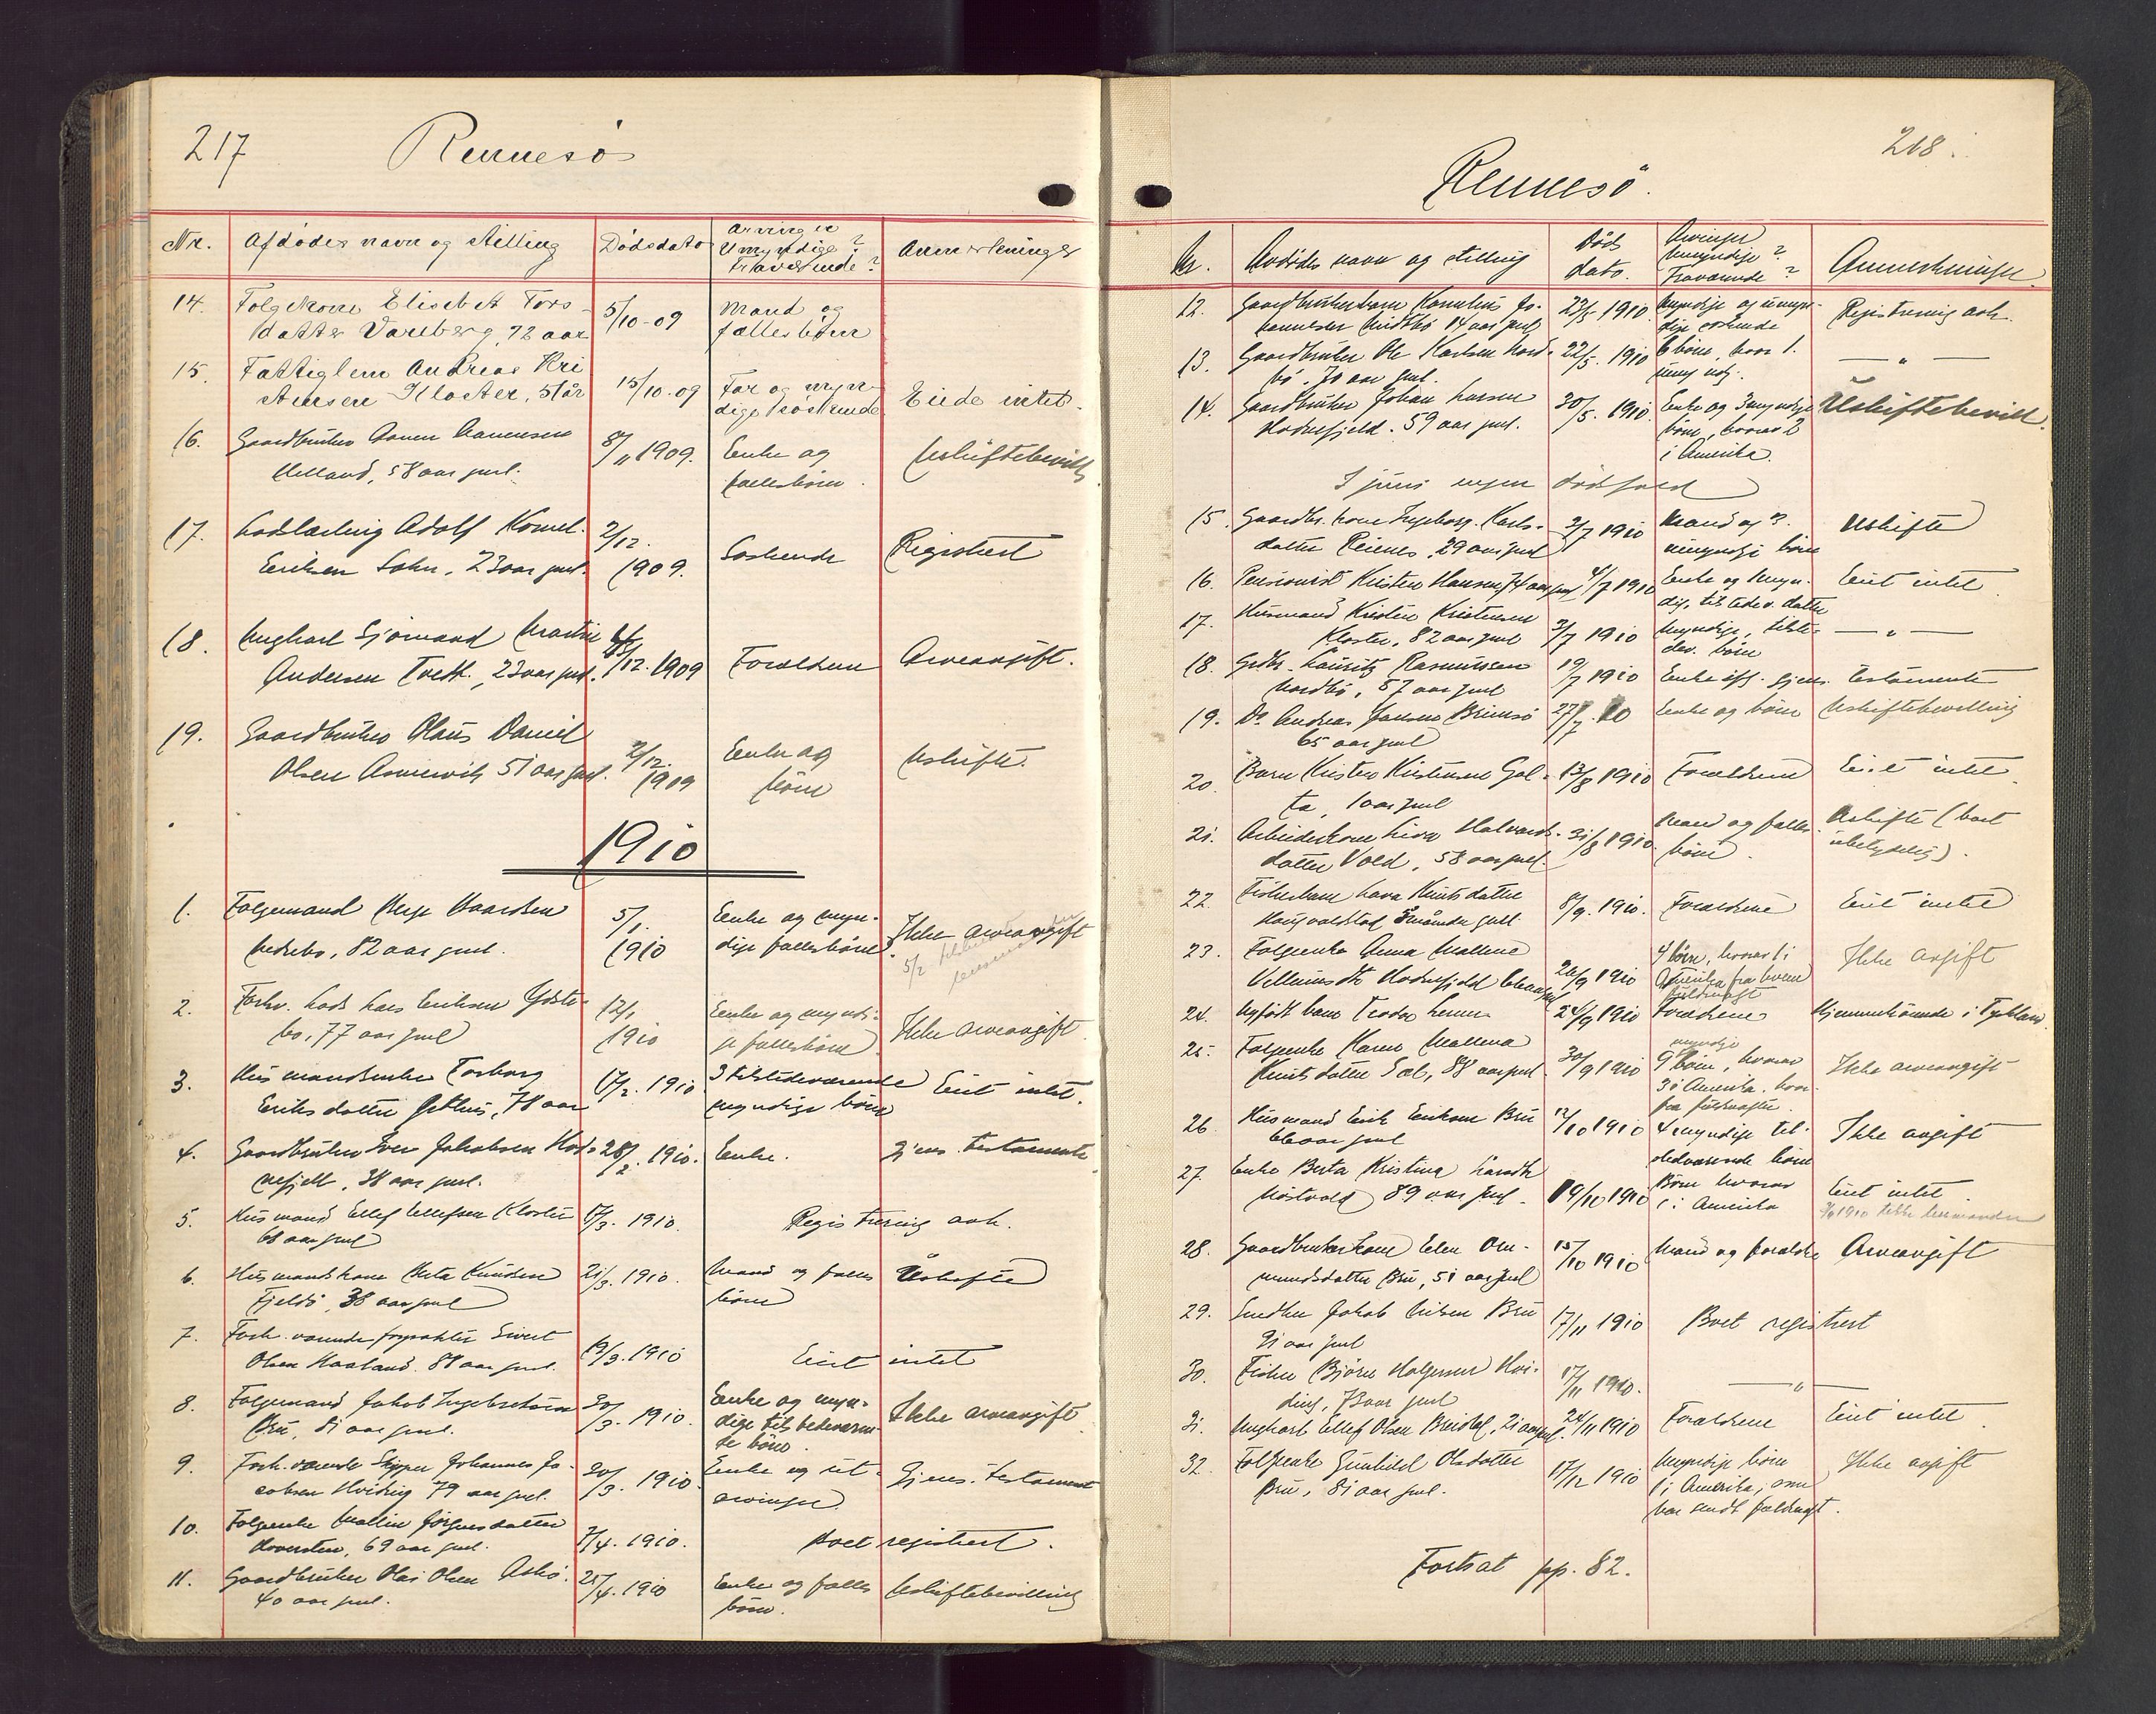 217 Rennesø
Nr. Afdødes navn og stilling Dødsdato Arvinger Umyndige? Fraværende? Anmerkninger
14. Folgekone Elisabet Tors-
datter Vareberg, 72 aar
5/10-09
Mand og
fællesbørn
15. Fattiglem Andreas Kri
stensen Kloster, 51 år
15/10-09
Far og myn-
dige søskende
Eiede intet.
16. Gaardbruker
Helland, 58 aar gml.
8/11 1909.
Enke og
fællesbørn.
Uskiftebevill
17. Lodslærling Adolf Kornel.
Eriksen Sokn, 23 aar gml.
2/12.
1909.
Søskende
Registrert
18. Ungkarl Sjømand Martin
Andersen Tveit, 23 aar gml.
/12. 1909
Forældrene
Arveavgift.
19. Gaardbruker Olaus Daniel
Olsen Asmervik 51 aar gml.
2/12.
1909
Enke og
børn
Uskifte.
1910
1. Folgemand Aage Baardsen
Vedrebø, 82 aar gml.
5/1.
1910
Enke og myn-
dige fællesbørn.
Ikke arveavgift
5/2
2. Forhv. Lods Lars Eriksen Ydste-
bø, 77 aar gml
12/1
1910
Enke og myndi-
ge fællesbørn
Ikke arveavgift
3. Husmandsenke Torborg
Eriksdatter, 78 aar
17/2. 1910
3 tilstedeværende
myndige børn
Eiet intet.
4. Gaardbruker Iver Jakobsen Hod-
nefjell, 38 aar gml.
28/2. 1910.
Enke.
gjens. testamente
5. Husmand Ellef Ellefsen Kloster
68 aar gml
17/3. 1910.
Registrering avh.
6. Husmandskone Berta Knudsen
Fjeldø, 38 aar gml
21/3. 1910.
Mand og fælles
børn
Uskifte
7. Forh. værende forpakter Sivert
Olsen Haaland. 84 aar gml.
19/3. 1910
Eiet intet
8. Folgemand Jakob Ingebretsen
Bru, 81 aar gml.
30/3. 1910.
Enke og myn-
dige tilstedeværen-
de børn.
Ikke arveavgift
9. Forh. værende Skipper Johannes Ja-
cobsen Hviding 79 aar gml.
30/3. 1910
Enke og ut-
arvinger
Gjens. testament
10. Folgeenke Malene Jørgensdatter
Hovesten, 69 aar gml.
7/4. 1910.
Boet registrert.
11. Gaardbruker Olai Olsen Askø.
40 aar gml.
25/4. 1910
Enke og fælles
børn.
Uskiftebevilling
218.
Rennesø.
Nr. Avdødes navn og stilling Døds dato. Arvinger Umyndige? Fraværende? Anmerkninger
12. Gaardbrukerbarn Kornelius Jo-
hannesen 14 aar gml
23/5 1910.
Myndige og umyn-
dige søskende
Registrering avh.
13. Gaardbruker Ole Karlsen Nord-
bø. 70 aar gml.
22/5. 1910
6 børn, hvor 1.
umyndg.
— " —
14. Gaardbruker Johan Larsen
Hodnefjeld. 59 aar gml.
30/5. 1910.
Enke og 3 myndige
børn, hvorav 2
i Amerika.
Uskiftebevill.
I juni ingen dødsfald
15. Gaardbr. kone Ingeborg Karls-
datter Reienes, 29 aar gml
2/7 1910
Mand og 3.
umyndige børn
Uskifte
16. Pensionist Kristen Hansen, 74 aar gml
4/7 1910
Enke og 1 myn-
dig, tilstedev. datter
Eiet intet.
17. Husmand Kristen Kristensen
Kloster, 82 aar gml
3/7 1910
Myndige, tilste-
dev. børn
— " —
18. Grdbr. Lauritz Rasmussen
Nordbø, 57 aar gml
19/7 1910
Enke iflg. gjens. testamente
19. Do Andreas Jansen Brimsø
65 aar gml
27/7. 10
Enke og børn
Uskiftebevilling
20. Barn Kristen Kristensen Gal-
ta, 1 aar gml
13/8 1910
Forældrene
Eiet intet.
21. Arbeiderkone Lisa Halvards-
datter Vold, 58 aar gml.
31/8 1910.
Mand og fælles
børn.
Uskifte (boet
ubetydelig).
22. Fiskerbarn Lava Knutsdatter
Haugvaldstad 3 måneder gml
8/9. 1910.
Forældrene
Eiet intet
23. Folgeenke Anna Mallene
Vellumsdtr Hodnefjeld
26/9 1910
4 børn, hvorav 1 i
Amerika fra hvem
fuldmagt
Ikke avgift
24. Nyfødt barn Teodor
24/9 1910
Forældrene
Hjemmehørende i Tyskland.
25. Folgeenke Karen Mallena
Knutsdatter Sæl, 88 aar gml.
30/9 1910
myndige
9 børn, hvorav
3 i Amerika, hvor-
fra fuldmagter.
Ikke arveavgift
26. Husmand Erik Eriksen Bru
66 aar gml
12/10 1910
4 myndige til-
stedværende børn
Ikke avgift
27. Enke Berta Kristina Larsdtr
89 aar gml.
19/10 1910
Børn hvorav
1 i Amerika
Eiet intet.
28. Gaardbrukerkone Elen Om-
mundsdatter Bru, 51 aar gml
15/10 1910
Mand og forældre
Arveavgift
29. Snedker Jakob Nilsen Bru
91 aar gml
17/11 1910
Boet registrert
30. Fisker Bjørn Holgersen Hvi-
ding, 73 aar gml
17/11 1910.
— " —
31. Ungkarl Ellef Olsen, 21 aar gml.
24/11 1910
Forældrene
Eiet intet
32. Folgeenke Gunhild Olsdatter
Bru, 81 aar gml.
17/12 1910
Myndige børn
1 i Amerika, som
har sendt fuldmagt.
Ikke avgift
Fortsat pp. 82.